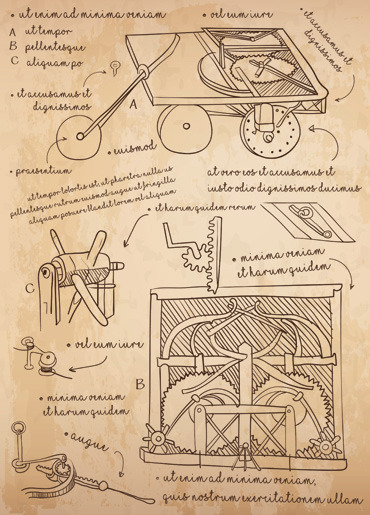 ut enim ad minima veniam
vel eum iure
et accusamus et
dignissimos
A ut tempor
B pellentesque
C aliquam po
et accusamus et
dignissimos
A
euismod
praesentium
at tempor lobortis est, ut pharetra nulla us
pellentesque rutrum euismod augue ut fringilla
aliquam posuere blandit lorem vel aliquam
at vero eos et accusamus et
iusto odio dignissimos ducimus
et harum quidem rerum
minima veniam
et harum quidem
C
vel eum iure
B
minima veniam
et harum quidem
augue
ut enim ad minima veniam,
quis nostrum exercitationem ullam